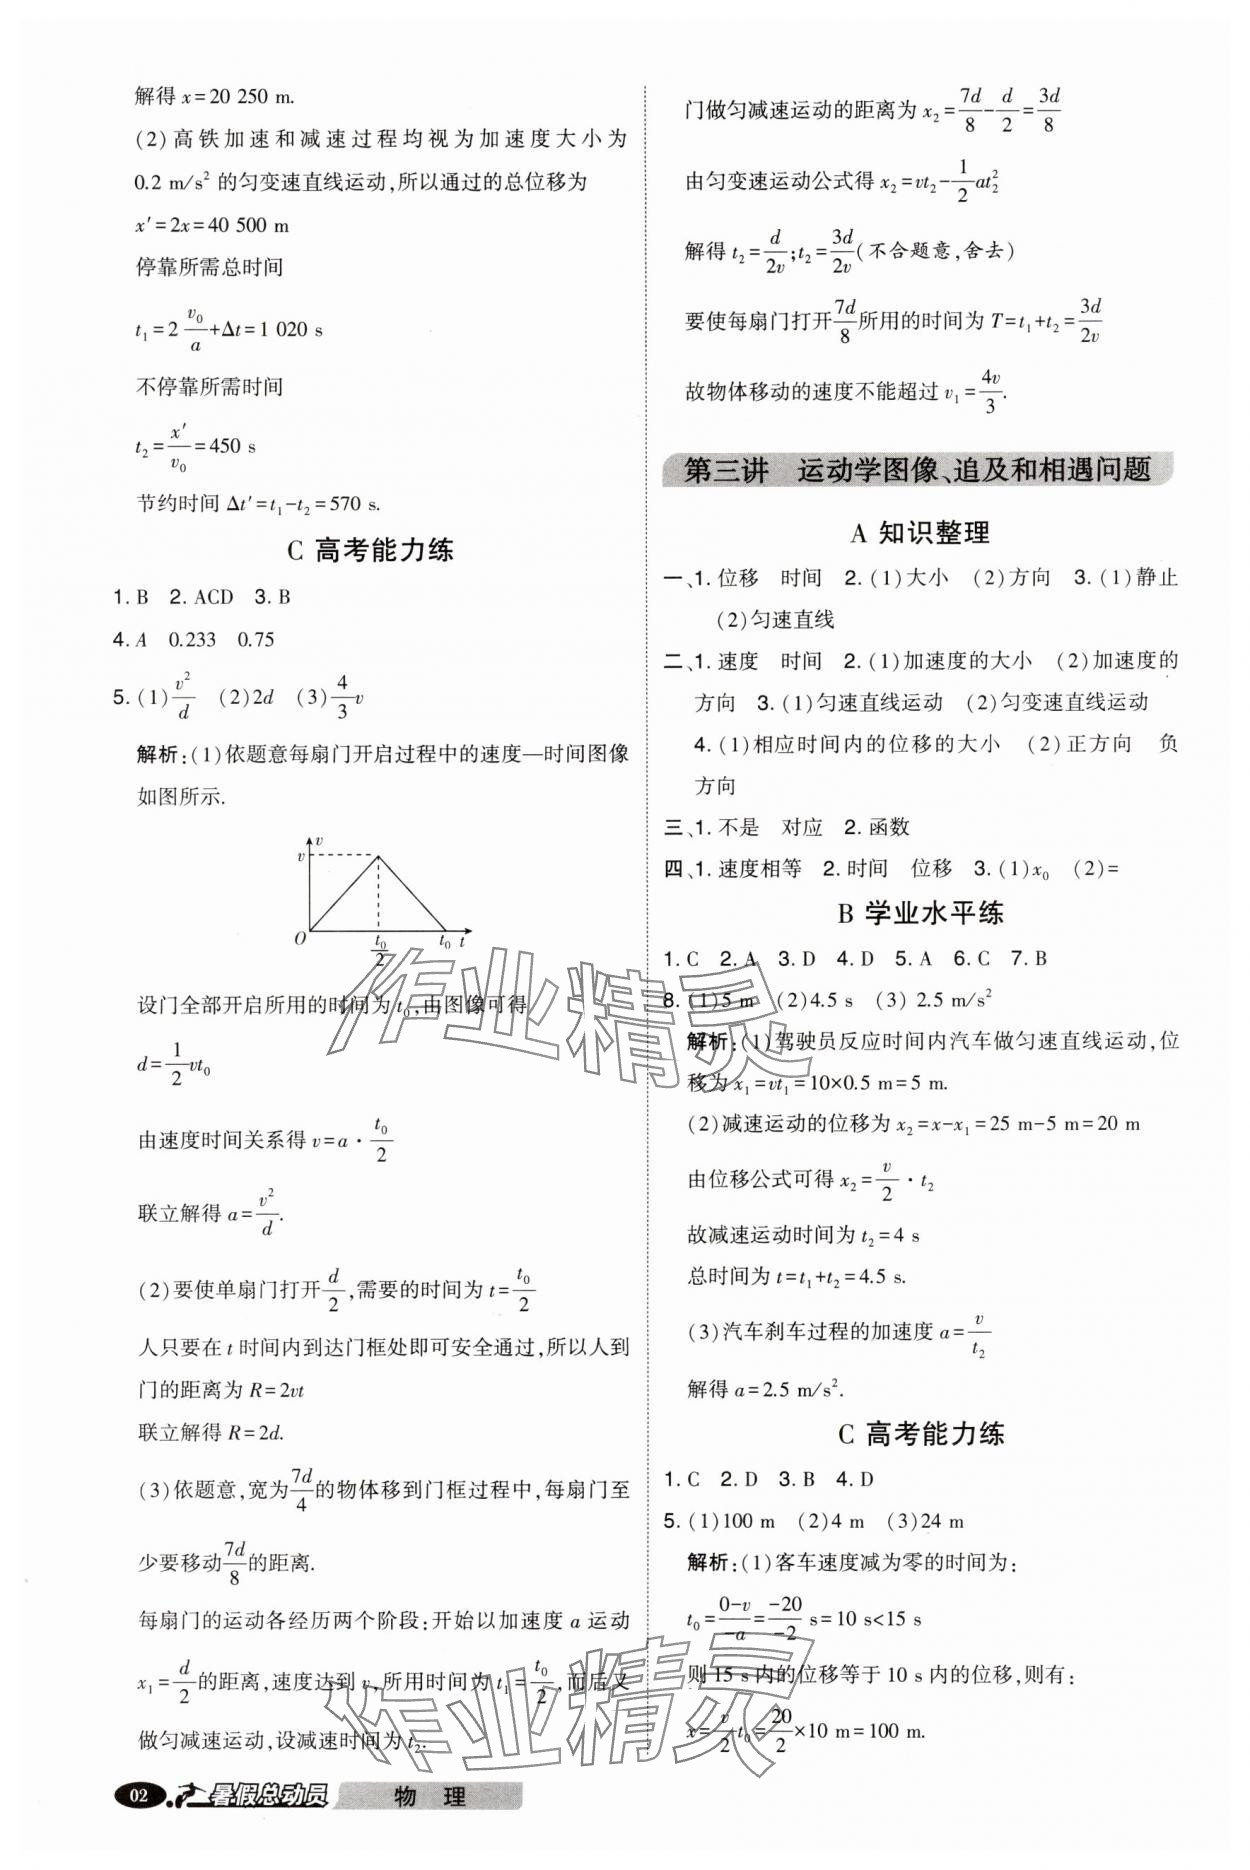 解得 x=20 250 m.
(2)高铁加速和减速过程均视为加速度大小为
0.2 m/s² 的匀变速直线运动,所以通过的总位移为
x′=2x=40 500 m
停靠所需总时间
t₁=2 v₀/a+Δt=1 020 s
不停靠所需时间
t₂=x′/v₀=450 s
节约时间 Δt′=t₁-t₂=570 s.
C 高考能力练
1. B 2. ACD 3. B
4. A 0.233 0.75
5. (1)v²/d (2)2d (3)4/3v
解析:(1)依题意每扇门开启过程中的速度—时间图像
如图所示.
v
v
O t₀/2 t₀ t
设门全部开启所用的时间为 t₀,由图像可得
d=1/2vt₀
由速度时间关系得 v=a·t₀/2
联立解得 a=v²/d.
(2)要使单扇门打开d/2,需要的时间为 t=t₀/2
人只要在 t 时间内到达门框处即可安全通过,所以人到
门的距离为 R=2vt
联立解得 R=2d.
(3)依题意,宽为7d/4的物体移到门框过程中,每扇门至
少要移动7d/8的距离.
每扇门的运动各经历两个阶段:开始以加速度 a 运动
x₁=d/2的距离,速度达到 v,所用时间为 t₁=t₀/2,而后又
做匀减速运动,设减速时间为 t₂.
门做匀减速运动的距离为 x₂=7d/8-d/2=3d/8
由匀变速运动公式得 x₂=vt₂-1/2at₂²
解得 t₂=d/2v;t₂=3d/2v(不合题意,舍去)
要使每扇门打开7d/8所用的时间为 T=t₁+t₂=3d/2v
故物体移动的速度不能超过 v₁=4v/3.
第三讲 运动学图像、追及和相遇问题
A 知识整理
一、1. 位移 时间 2. (1)大小 (2)方向 3. (1)静止
(2)匀速直线
二、1. 速度 时间 2. (1)加速度的大小 (2)加速度的
方向 3. (1)匀速直线运动 (2)匀变速直线运动
4. (1)相应时间内的位移的大小 (2)正方向 负
方向
三、1. 不是 对应 2. 函数
四、1. 速度相等 2. 时间 位移 3. (1)x₀ (2)=
B 学业水平练
1. C 2. A 3. D 4. D 5. A 6. C 7. B
8. (1)5 m (2)4.5 s (3) 2.5 m/s²
解析:(1)驾驶员反应时间内汽车做匀速直线运动,位
移为 x₁=vt₁=10×0.5 m=5 m.
(2)减速运动的位移为 x₂=x-x₁=25 m-5 m=20 m
由位移公式可得 x₂=v/2·t₂
故减速运动时间为 t₂=4 s
总时间为 t=t₁+t₂=4.5 s.
(3)汽车刹车过程的加速度 a=v/t₂
解得 a=2.5 m/s².
C 高考能力练
1. C 2. D 3. B 4. D
5. (1)100 m (2)4 m (3)24 m
解析:(1)客车速度减为零的时间为:
t₀=0-v/-a=-20/-2 s=10 s<15 s
则 15 s 内的位移等于 10 s 内的位移,则有:
x=v/2 t₀=20/2×10 m=100 m.
作业精灵
作业精灵
02 暑假总动员 物 理